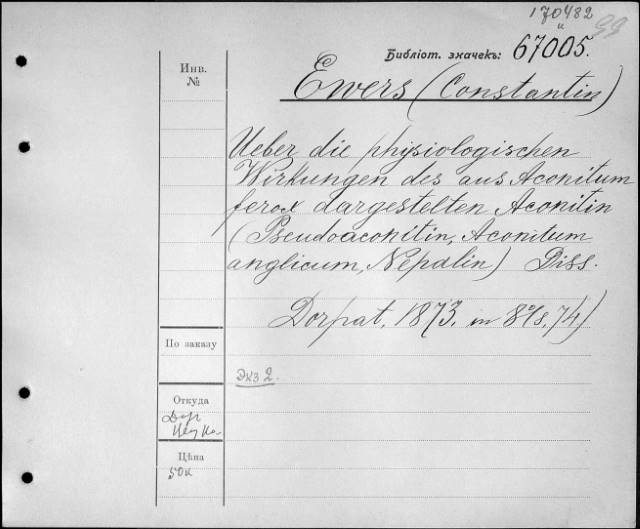 170482
Библіот. значекъ: 67005.
Инв.
№
Ewers (Constantin)
Ueber die physiologischen
Wirkungen des aus Aconitum
ferox dargestelten Aconitin
(Pseudoaconitin, Aconitum
anglicum, Nepalin) Diss.
Dorpat, 1873. in 8º/s, 74)
По заказу
Экз 2.
Откуда
Цѣна
50к